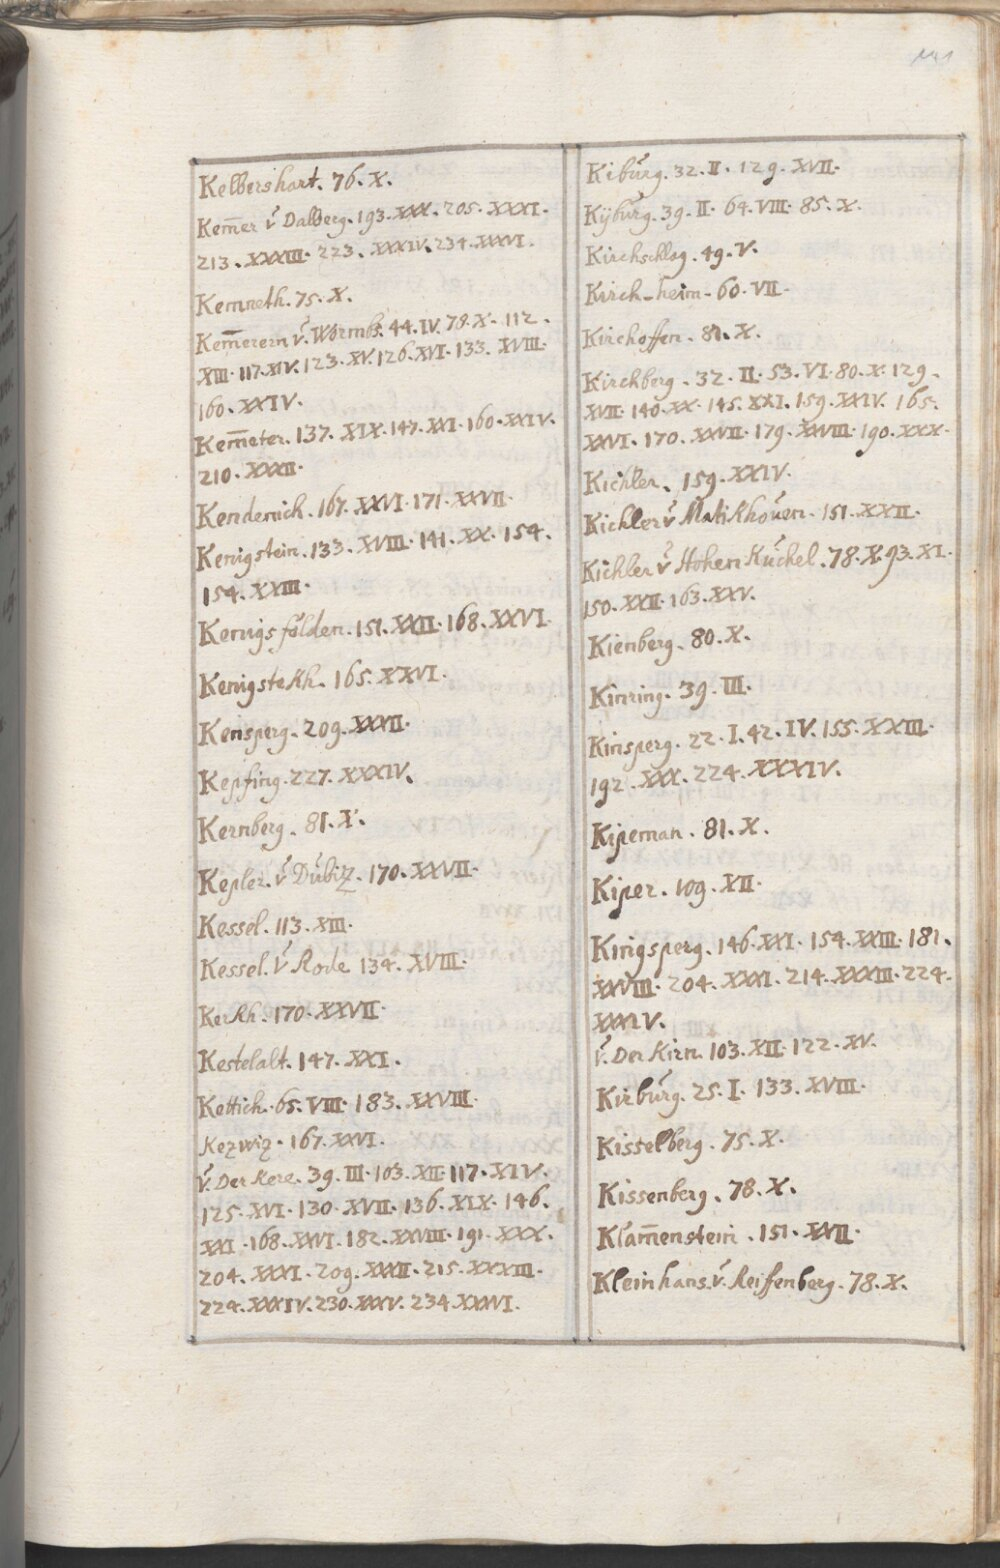 Kelbershart. 76. X.
Kem̄er v̆ Dalberg. 193. XXX. 205. XXXI.
213. XXXIII. 223. XXXIV. 234. XXXVI.
Kemneth. 75. X.
Kem̄erern v̆ Wormbs. 44. IV. 78. X. 112.
XIII. 117. XIV. 123. XV. 126. XVI. 133. XVIII.
160. XXIV.
Kem̄ater. 137. XIX. 147. XXI. 160. XXIV.
210. XXXII.
Kendenich. 167. XXVI. 171. XXVII.
Kenigstein. 133. XVIII. 141. XX. 154.
154. XXIII.
Kenigsfölden. 151. XXII. 168. XXVI.
Kenigstekh. 165. XXVI.
Kensperg. 209. XXXII.
Kepfing. 227. XXXIV.
Kernberg. 81. X.
Kepler. v̆ Dŭbitz. 170. XXVII.
Kessel. 113. XIII.
Kessel. v̆ Rode 134. XVIII.
Kerkh. 170. XXVII.
Kestelalt. 147. XXI.
Kettich. 65. VIII. 183. XXVIII.
Kezwiz. 167. XXVI.
v̆. Der Kere. 39. III. 103. XII. 117. XIV.
125. XVI. 130. XVII. 136. XIX. 146.
XXI. 168. XXVI. 182. XXVIII. 191. XXX.
204. XXXI. 209. XXXII. 215. XXXIII.
224. XXXIV. 230. XXXV. 234. XXXVI.
Kibŭrg. 32. II. 129. XVII.
Kÿbŭrg. 39. II. 64. VIII. 85. X.
Kirchschlag. 49. V.
Kirch-heim. 60. VII.
Kirchoffen. 81. X.
Kirchberg. 32. II. 53. VI. 80. X. 129.
XVII. 140. XX. 145. XXI. 159. XXIV. 165.
XXVI. 170. XXVII. 179. XXVIII. 190. XXX.
Kichler. 159. XXIV.
Kichler v̆ Matikhoŭen. 151. XXII.
Kichler v̆ Hohen Kŭchel. 78. X. 93. XI.
150. XXII. 163. XXV.
Kienberg. 80. X.
Kinring. 39. III.
Kinsperg. 22. I. 42. IV. 155. XXIII.
192. XXX. 224. XXXIV.
Kipeman. 81. X.
Kiper. 109. XII.
Kingsperg. 146. XXI. 154. XXIII. 181.
XXVIII. 204. XXXI. 214. XXXIII. 224.
XXXIV.
v̆. Der Kirn. 103. XII. 122. XV.
Kirbŭrg. 25. I. 133. XVIII.
Kisselberg. 75. X.
Kissenberg. 78. X.
Klam̄enstein. 151. XXII.
Kleinhans. v̆. Reiffenberg. 78. X.